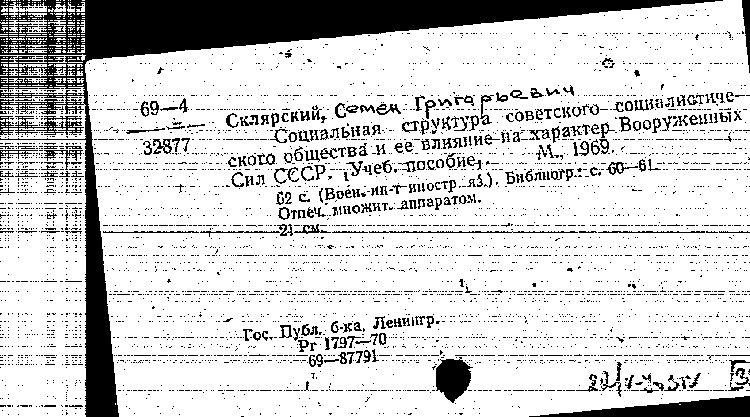 69—4
32877
Склярский, Семен Григорьевич
Социальная структура советского социалистиче-
ского общества и ее влияние на характер Вооруженных
Сил СССР. Учеб. пособие. М., 1969.
62 с. (Воен. ин-т иностр. яз.). Библиогр.: с. 60—61.
Отпеч. множит. аппаратом.
21 см.
Гос. Публ. б-ка, Ленингр.
Рг 1797—70
69—87791